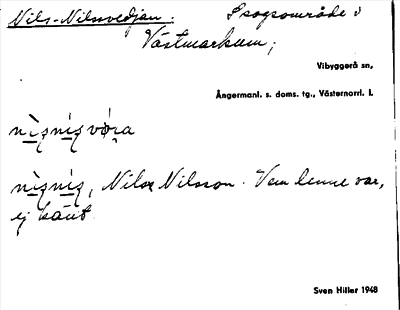 Nils-Nilsvedjan. Skogsområde i
Västmarkum;
Vibyggerå sn,
Ångermanl. s. doms. tg., Västernorrl. l.
nìsnis
nìsnis, Nils Nilsson. Vem denne var,
ej känt.
Sven Hiller 1948